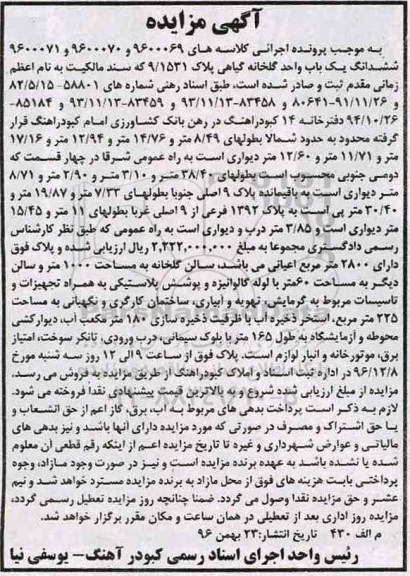 آگهی مزایده
به موجب پرونده اجرائی کلاسه های ۹۶۰۰۰۶۹ و ۹۶۰۰۰۷۰ و ۹۶۰۰۰۷۱
ششدانگ یک باب واحد گلخانه گیاهی پلاک ۹/۱۵۳۱ که سند مالکیت به نام اعظم
زمانی مقدم ثبت و صادر شده است، طبق اسناد رهنی شماره های ۵۸۸۰۱- ۸۲/۵/۱۵
و ۹۱/۱۱/۲۶-۸۰۶۴۱ و ۸۳۴۵۸-۹۳/۱۱/۱۳ و ۸۳۴۵۹-۹۳/۱۱/۱۳ و ۸۵۱۸۴-
۹۴/۱۰/۲۶ دفترخانه ۱۴ کبودراهنگ در رهن بانک کشاورزی امام کبودراهنگ قرار
گرفته محدود به حدود شمالا بطولهای ۸/۴۹ متر و ۱۴/۷۶ متر و ۱۲/۹۴ متر و ۱۷/۱۶
متر و ۱۱/۷۱ متر و ۱۲/۶۰ متر دیواری است به راه عمومی شرقا در چهار قسمت که
دومی جنوبی محسوب است بطولهای ۳۸/۴۰ متر و ۳/۱۰ متر و ۲/۹۰ متر و ۸/۷۱
متر دیواری است به باقیمانده پلاک ۹ اصلی جنوبا بطولهای ۷/۳۳ متر و ۱۹/۸۷ متر و
۳۰/۴۰ متر پی است به پلاک ۱۳۹۲ فرعی از ۹ اصلی غربا بطولهای ۱۱ متر و ۱۵/۴۵
متر دیواری است و ۳/۸۵ متر درب و دیواری است به راه عمومی که طبق نظر کارشناس
رسمی دادگستری مجموعا به مبلغ ۲,۲۲۲,۰۰۰,۰۰۰ ریال ارزیابی شده و پلاک فوق
دارای ۲۸۰۰ متر مربع اعیانی می باشد، سالن گلخانه به مساحت ۱۰۰۰ متر و سالن
دیگر به مساحت ۶۰متر با لوله گالوانیزه و پوشش پلاستیکی به همراه تجهیزات و
تاسیسات مربوط به گرمایش، تهویه و آبیاری، ساختمان کارگری و نگهبانی به مساحت
۲۲۵ متر مربع، استخر ذخیره آب با ظرفیت ذخیره سازی ۱۸۰ متر مکعب آب، دیوارکشی
محوطه و آزمایشگاه به طول ۱۶۵ متر با بلوک سیمانی، درب ورودی، تانکر سوخت، امتیاز
برق، موتورخانه و انبار لوازم است. پلاک فوق از ساعت ۹ الی ۱۲ روز سه شنبه مورخ
۹۶/۱۲/۸ در اداره ثبت اسناد و املاک کبودراهنگ از طریق مزایده به فروش می رسد.
مزایده از مبلغ ارزیابی شده شروع و به بالاترین قیمت پیشنهادی نقدا فروخته می شود.
لازم به ذکر است پرداخت بدهی های مربوط به آب، برق، گاز اعم از حق انشعاب و
یا حق اشتراک و مصرف در صورتی که مورد مزایده دارای آنها باشد و نیز بدهی های
مالیاتی و عوارض شهرداری و غیره تا تاریخ مزایده اعم از اینکه رقم قطعی آن معلوم
شده یا نشده باشد به عهده برنده مزایده است و نیز در صورت وجود مازاد، وجوه
پرداختی بابت هزینه های فوق از محل مازاد به برنده مزایده مسترد خواهد شد و نیم
عشر و حق مزایده نقدا وصول می گردد. ضمنا چنانچه روز مزایده تعطیل رسمی گردد،
مزایده روز اداری بعد از تعطیلی در همان ساعت و مکان مقرر برگزار خواهد شد.
م الف ۴۳۰ تاریخ انتشار:۲۳ بهمن ۹۶
رئیس واحد اجرای اسناد رسمی کبودر آهنگ- یوسفی نیا